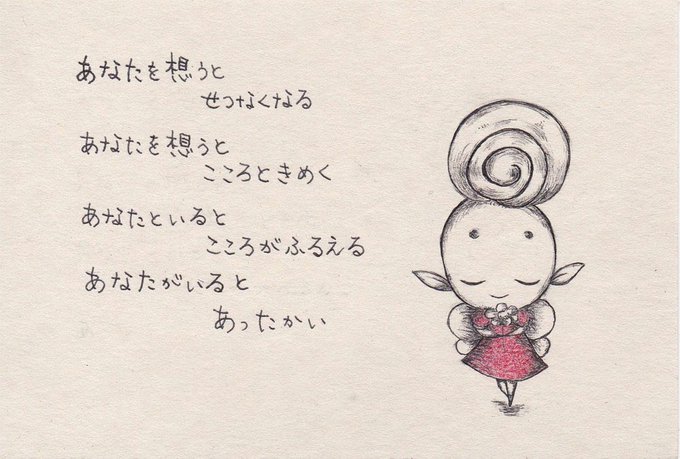 あなたを想うと
せつなくなる
あなたを想うと
こころときめく
あなたといると
こころがふるえる
あなたがいると
あったかい